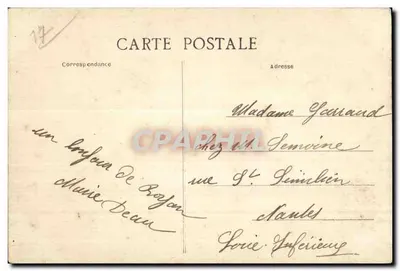 17
CARTE POSTALE
Correspondance
Adresse
un bonjour de Royan
Marie Deau
Madame Garraud
chez M. Lemoine
rue St Similien
Nantes
Loire-Inférieure
CPARAMA